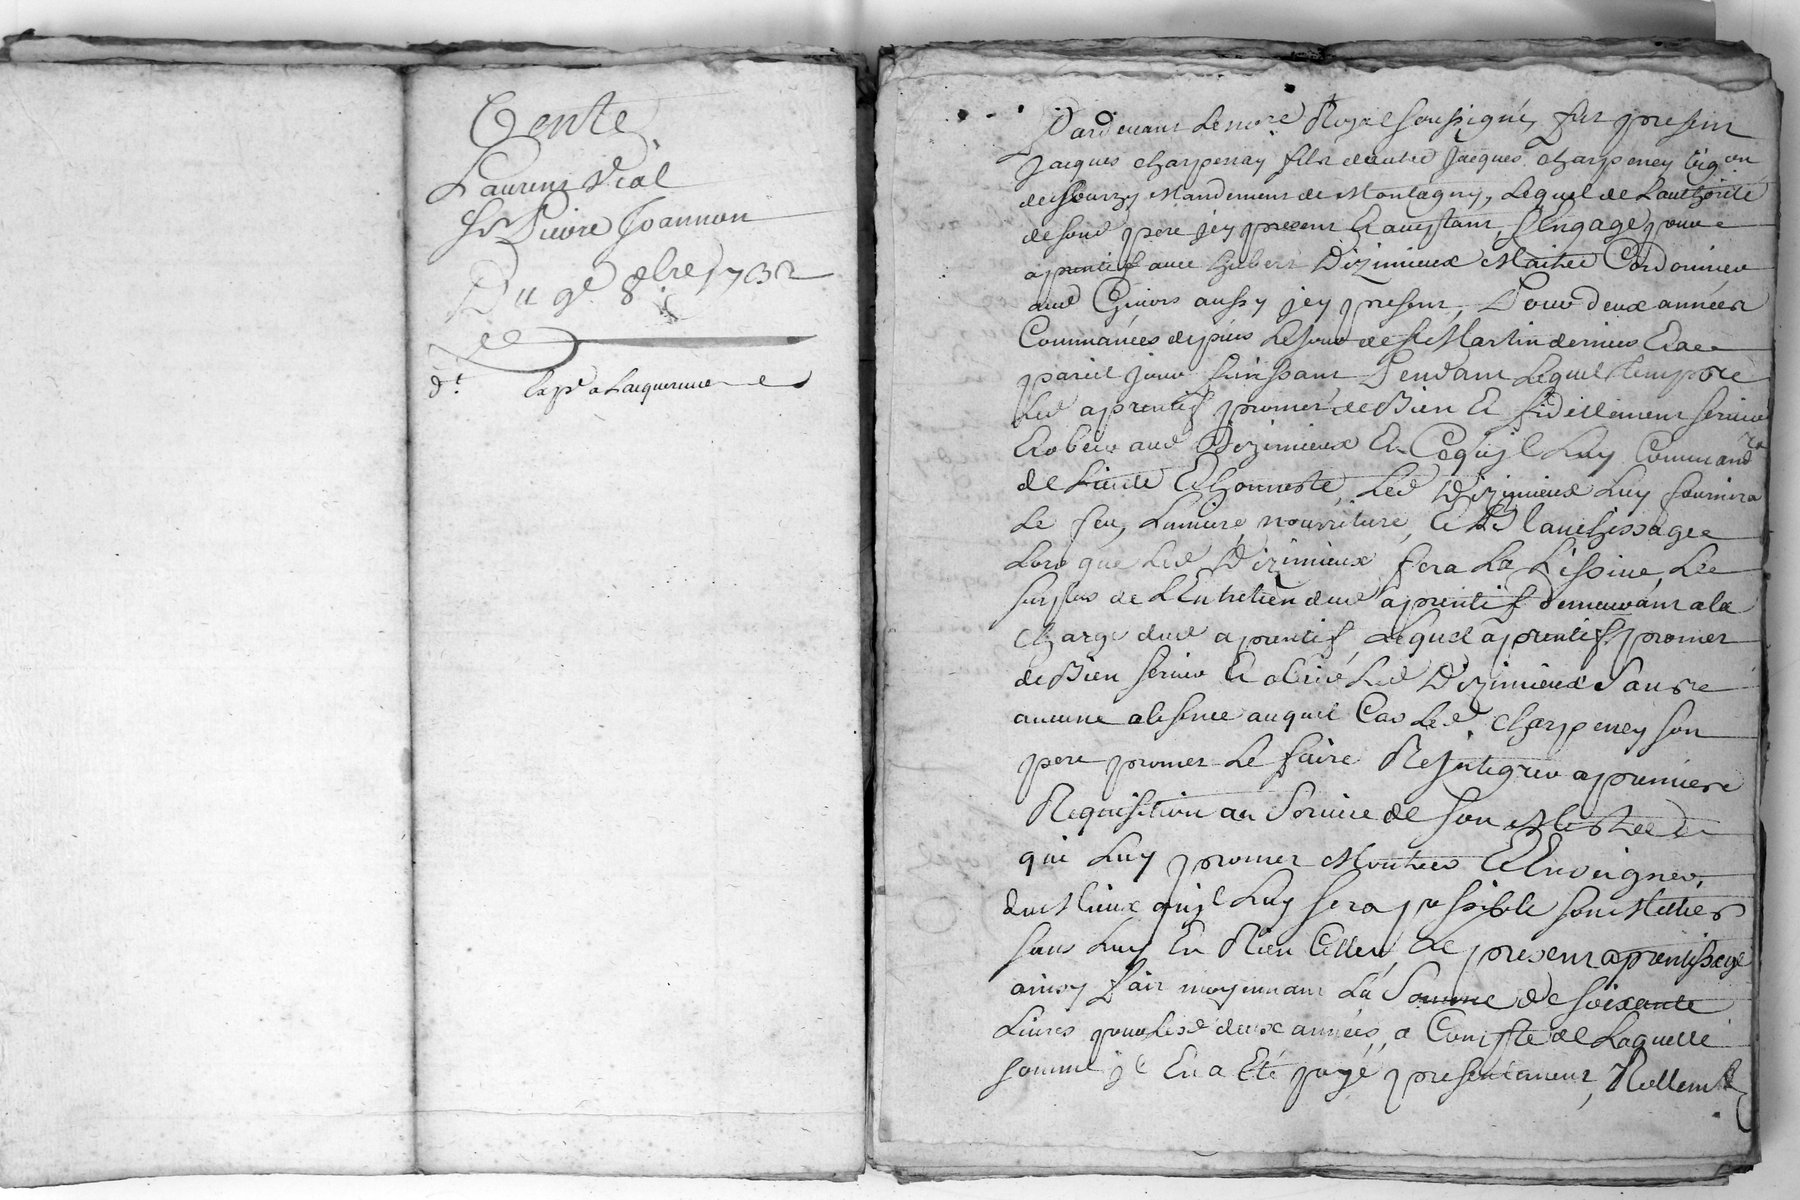 Vente
Laurens Vial
Sr Pierre Joannon
Du 9e 8bre 1732
d.t
Pardevant le nore Royal soussigné, fut present
Jacques charpenay fils dautre Jacques charpeney vigon
de Sourzy Mandement de Montagny, lequel de Lauthorité
de sond pere jcy present Et aucistant, s'Engage pour
aprentif avec hubert Dizimieux Maitre Cordonnier
aud Givors aussy jcy present, Pour deux années
Commancées depuis le jour de st Martin dernier Et a
pareil jour finissant Pendant lequel temps
led aprentif promet de Bien Et fidellement servir
Et obeir aud Dizimieux En Ce quil luy Commandra
de Licite Et honneste, Led Dizimieux luy fournira
le feu, lumiere, nourriture, Et Blanchissage
lors que led Dizimieux fera la Lessive, Le
surplus de L'Entretien dud aprentif demeurant a la
charge dud aprentif, lequel aprentif promet
de Bien servir Et obeir led Dizimieux sans
aucune absence auquel Cas led charpeney son
pere promet le faire Rejntegrer a premiere
Requisition au service de son Mestre
qui luy promet Montrer Et Enseigner,
du Mieux quil luy sera possible son Mettier
sans luy En Rien Celler, Le present aprentissage
ainsy fait moyennant la Somme de soixante
Livres pour lesd deux années, a Compte de laquelle
somme jl En a Eté payé presentement, Rellem